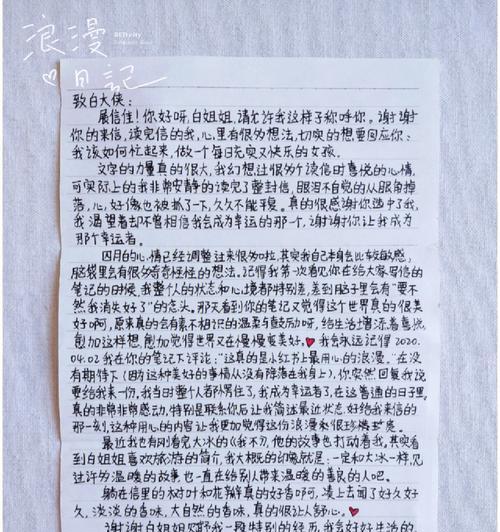 浪漫
日記
致白大侠：
展信佳！你好呀，白姐姐，请允许我这样子称呼你。谢谢
你的来信，读完信的我，心里有很多想法，切实的想要回应你：
我该如何忙起来，做一个每日充实又快乐的女孩。
文字的力量真的很大，我幻想过很多个读信时喜悦的心情，
可实际上的我非常安静的读完了整封信，眼泪不自觉的从眼角掉
落，心好像也被抓了一下，久久不能平复。真的很感谢你选中了我，
我渴望着却不曾相信我会成为幸运的那一个，谢谢你让我成为
那个幸运者。
四月的心情已经调整过来很多啦，其实我自己本身会比较敏感，
脑袋里会有很多奇奇怪怪的想法。记得我第一次看见你在给大家写信的
笔记的时候，我整个人的状态和心境都特别差，差到脑子里会有“要不
然我消失好了”的念头。那天看到你的笔记又觉得这个世界真的很美
好啊，原来真的会有素不相识的温柔与鼓励呀，给生活增添着喜悦，
愈加这样想，愈加觉得世界又在慢慢变美好。我会永远记得2020.
04.02我在你的笔记下评论：“这真的是小红书上最用心的浪漫。”在没
有期待下（因为这种美好的事情从没有降落在我身上），你突然回复我说
要给我来一份，我当时整个人都怔住了，我成为幸运者了，在这普通的日子里，
真的非常非常感动，特别是联系你后让我简述最近状态，好给我来信的
那一刻，这种用心的内容让我更加觉得这份浪漫来很珍稀珍贵。
最近我也有刚看完大冰的《我不》，他的故事也打动着我，其实看
到白姐姐喜欢旅游的简介，我大概的印象就是，一定和大冰一样，见
过许多温暖的故事也一直在给别人带来温暖的善良的人吧。
躺在信里的树叶和花瓣真的好香啊，凑上去闻了好久好
久，淡淡的香味，大自然的香味，真的很让人舒心。
谢谢白姐姐赐予我一段特别的经历，我会好好生活的